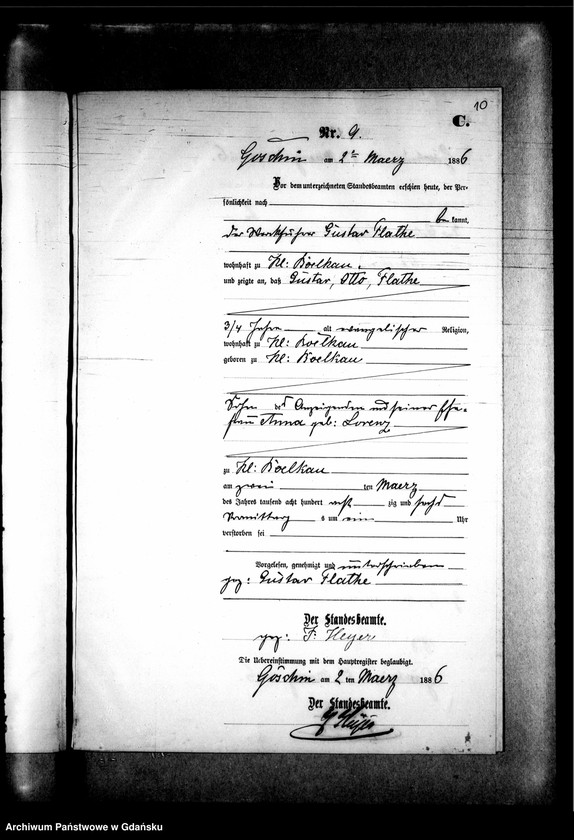 10
C.
Nr. 9.
Göschin am 2ten Maerz 1886
Vor dem unterzeichneten Standesbeamten erschien heute, der Per-
sönlichkeit nach
bekannt,
der Werkführer Gustav Flathe
wohnhaft zu Kl: Boelkau.
und zeigte an, daß Gustav, Otto, Flathe
3/4 Jahre alt evangelischer Religion,
wohnhaft zu Kl: Boelkau
geboren zu Kl: Boelkau
Sohn des Anzeigenden und seiner Ehe-
frau Anna geb: Lorenz
zu Kl: Boelkau
am zwei ten Maerz
des Jahres tausend acht hundert acht zig und sechs
Vormittags um ein Uhr
verstorben sei
Vorgelesen, genehmigt und unterschrieben
gez: Gustav Flathe
Der Standesbeamte.
gez: F: Heyer
Die Uebereinstimmung mit dem Hauptregister beglaubigt.
Göschin am 2 ten Maerz 1886
Der Standesbeamte.
Heyer
Archiwum Państwowe w Gdańsku